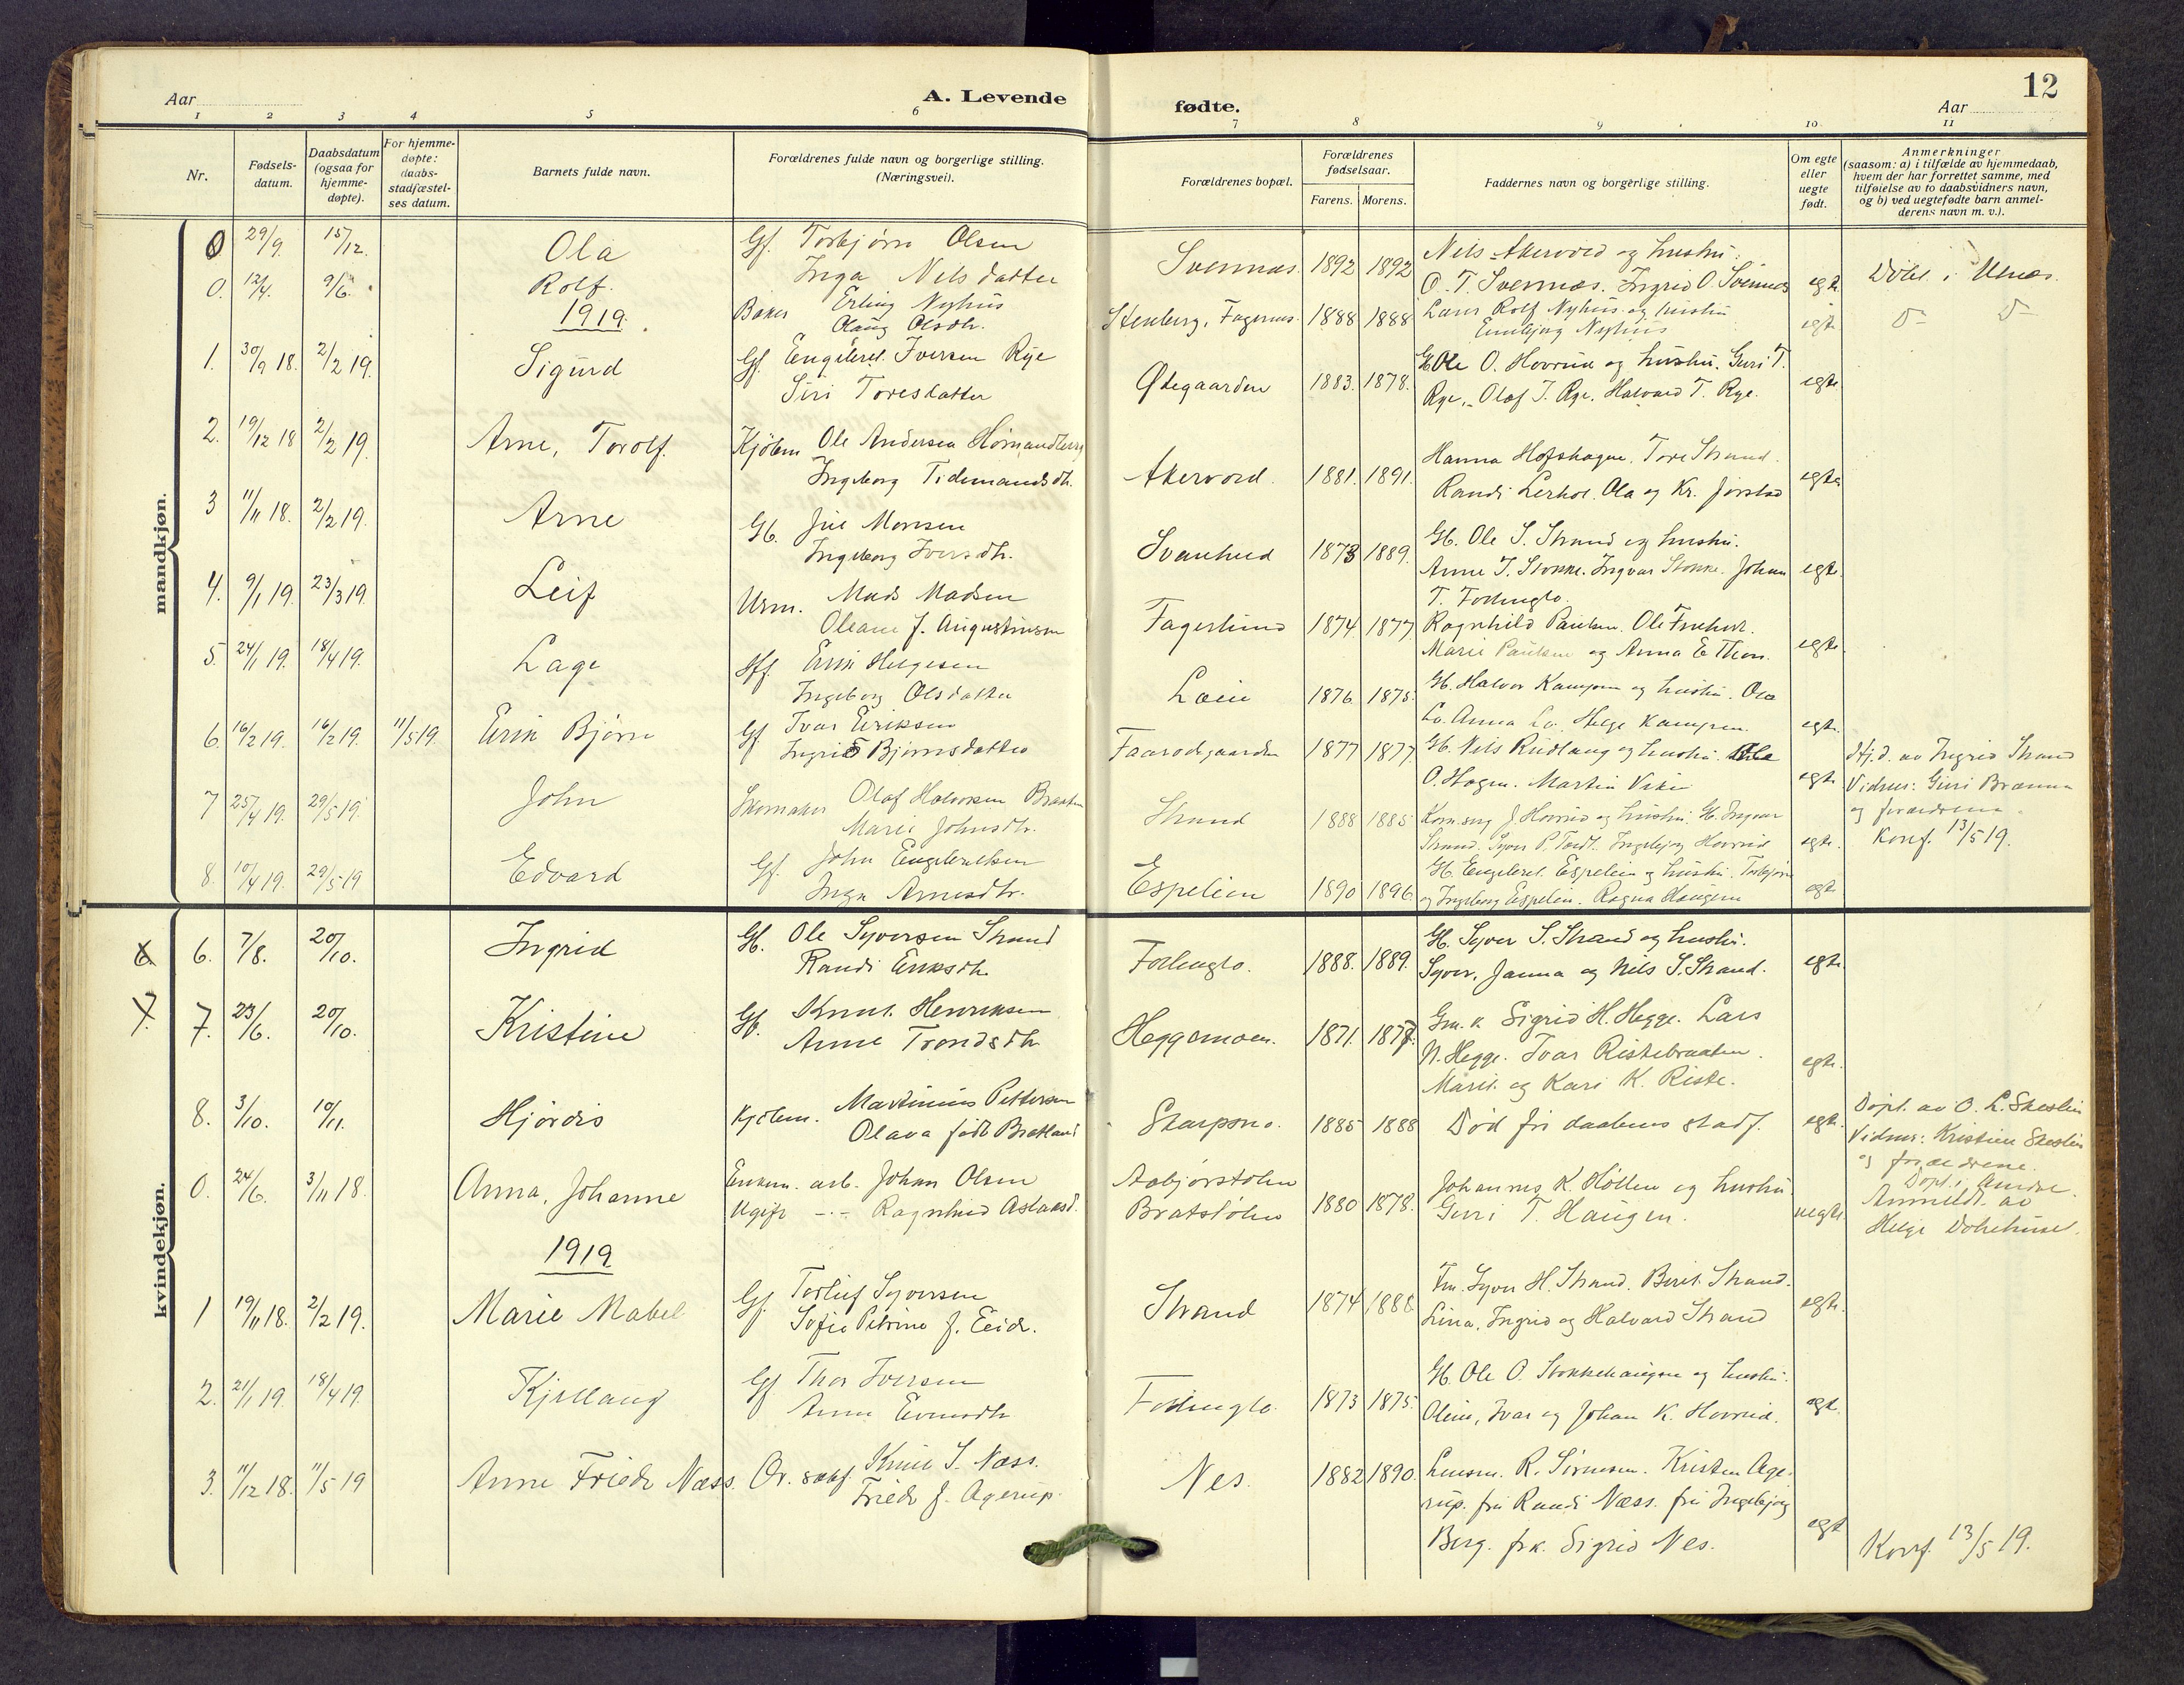 Aar
A. Levende
fødte.
Aar
12
1 2 3 4 5 6 7 8 9 10 11
Nr.
Fødsels-
datum.
Daabsdatum
(ogsaa for
hjemme-
døpte).
For hjemme-
døpte:
daabs-
stadfæstel-
ses datum.
Barnets fulde navn.
Forældrenes fulde navn og borgerlige stilling.
(Næringsvei).
Forældrenes bopæl.
Forældrenes
fødselsaar.
Farens. Morens.
Faddernes navn og borgerlige stilling.
Om egte
eller
uegte
født.
Anmerkninger
(saasom: a) i tilfælde av hjemmedaab,
hvem der har forrettet samme, med
tilføielse av to daabsvidners navn,
og b) ved uegtefødte barn anmel-
derens navn m. v.).
mandkjøn.
0 29/9. 15/12. Ola Gf. Torbjørn Olsen
Inga Nilsdatter
Svennæs. 1892 1892 Nils Akervold og hustru.
O. T. Svennæs. Ingrid O. Svennæs egte. Døbt i Ulnæs.
0. 12/4. 9/6. Rolf. Baker Erling Nyhus
Olaug Olsdtr.
Stenberg, Fagernæs. 1888 1888 Lærer Rolf Nyhus og hustru
Nyhus egte.
1919.
1. 30/9 18. 2/2 19. Sigurd Gf. Engebret Iversen Rye
Siri Toresdatter
Ødegaarden 1883. 1878. G Ole O. Hovrud og hustru. Guri T.
Rye, Olaf T. Rye, Halvard T. Rye. egte.
2. 19/12 18 2/2 19. Arne, Torolf. Kjøbm Ole Andersen
Ingeborg Tidemandsdtr.
Akervold. 1881. 1891. Hanna Hofshagen. Tore Strand.
Randi Lerhol. Ola og Kr. Jorstad egte
3 11/11 18. 2/2 19. Arne Gb. Juel Monsen
Ingeborg Iversdtr.
Svanheld 1873 1889. Gb. Ole S. Strand og hustru.
Anne T. Stokke. Ingvar Stokke. Johan
T. Fodnuglo. egte.
4. 9/1 19. 23/3 19. Leif Urm. Mads Madsen
Oleane f. Augustinsen
Fagerlund 1874 1877 Ragnhild Paulsen. Ole
Marie Paulsen og Anna E. Thon. egte.
5. 24/1 19. 18/4 19. Lage Gf. Erik Helgesen
Ingeborg Olsdatter
Loeie 1876 1875. Gb. Halvor Kampen og hustru. Ola
Lo. Anna Lo. Helge Kampen. egte.
6. 16/2 19. 16/2 19. 11/5 19. Erik Bjørn Gf. Ivar Eriksen
Ingrid Bjørnsdatter
1877 1877. Gb. Nils Rudlang og hustru. Ole
O. Hagen. Martin Viken egte Hj.d. av Ingrid Strand
Vidner: Guri Brænna
og forældrene.
Konf. 13/5 19.
7 25/4 19. 29/5 19. John Skomaker Olaf Halvorsen
Marie Johnsdtr.
Strand 1888 1885 J. Hovrud og hustru. Gb. Ingvar
Strand. Syver P. Ingebjørg Hovrud egte.
8. 10/4 19. 29/5 19 Edvard Gf. John Engebretsen
Inga Arnesdtr.
Espelien 1890 1896. Gb. Engebret Espelien og hustru. Torbjørn
og Ingeborg Espelien. Ragna Haugen egte
kvindekjøn.
6. 6. 7/8. 20/10. Ingrid Gb. Ole Syversen Strand
Randi Eriksdtr.
1888. 1889. Gb. Syver S. Strand og hustru.
Syver, Janna og Nils S. Strand. egte.
7. 7. 23/6. 20/10. Kristine Gf. Knut Henriksen
Anne Trondsdtr.
Heggemoen. 1871. 1877. Gm. k. Sigrid H. Hegge. Lars
N. Hegge. Ivar Ristebraaten.
Marit og Kari K. Riste. egte.
8. 3/10. 10/11. Hjørdis Kjøbm. Martinius Pettersen
Olava født Bratland
Skarpsno. 1885 1888 Død før daabens stadf. egte. Døpt av O. L. Skeslien
Vidner: Kristine Skeslien
og forældrene.
0. 24/6. 3/11 18. Anna, Johanne Enkem. arb. Johan Olsen
Ugift -"- Ragnhild Aslaksd.
Aabjørstølen
Bratstølen 1880 1878. Johannes K. Høllen og hustru.
Guri T. Haugen. uegte. Døpt i
Anmeldt av
Helge
1919
1 19/11 18. 2/2 19. Marie Mabel Gf. Torleif Syversen
Sofie Petrine f. Eide.
Strand 1874 1888 Fm. Syver H. Strand. Berit Strand.
Lina, Ingrid og Halvard Strand egte.
2. 21/1 19. 18/4 19. Kjellaug Gf Thor Iversen
Anne
1873 1875. Gb. Ole O. Stokkehaugen og hustru.
Oline, Ivar og Johan K. Hovrud. egte.
3. 11/12 18. 11/5 19 Anne Friede Næss. Or. sakf. Knut S. Næss.
Friede f. Agerup.
Nes. 1882 1890. Lensm. R. Sørensen. Kristen Age-
rup. fru Randi Næss. fru Ingebjørg
Berg. frk. Sigrid Nes. egte Konf. 13/5 19.